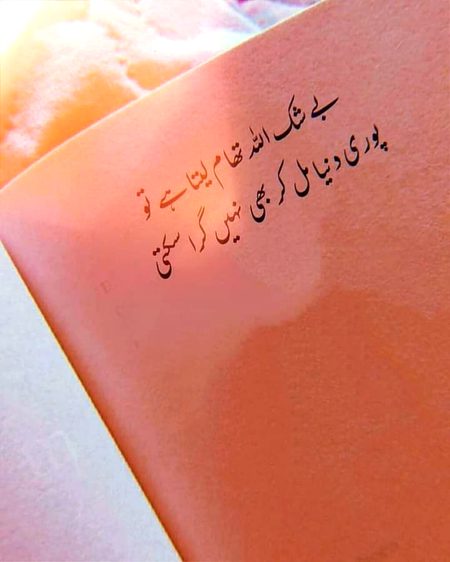 بے شک اللہ تھام لیتا ہے تو
پوری دنیا مل کر بھی نہیں گرا سکتی